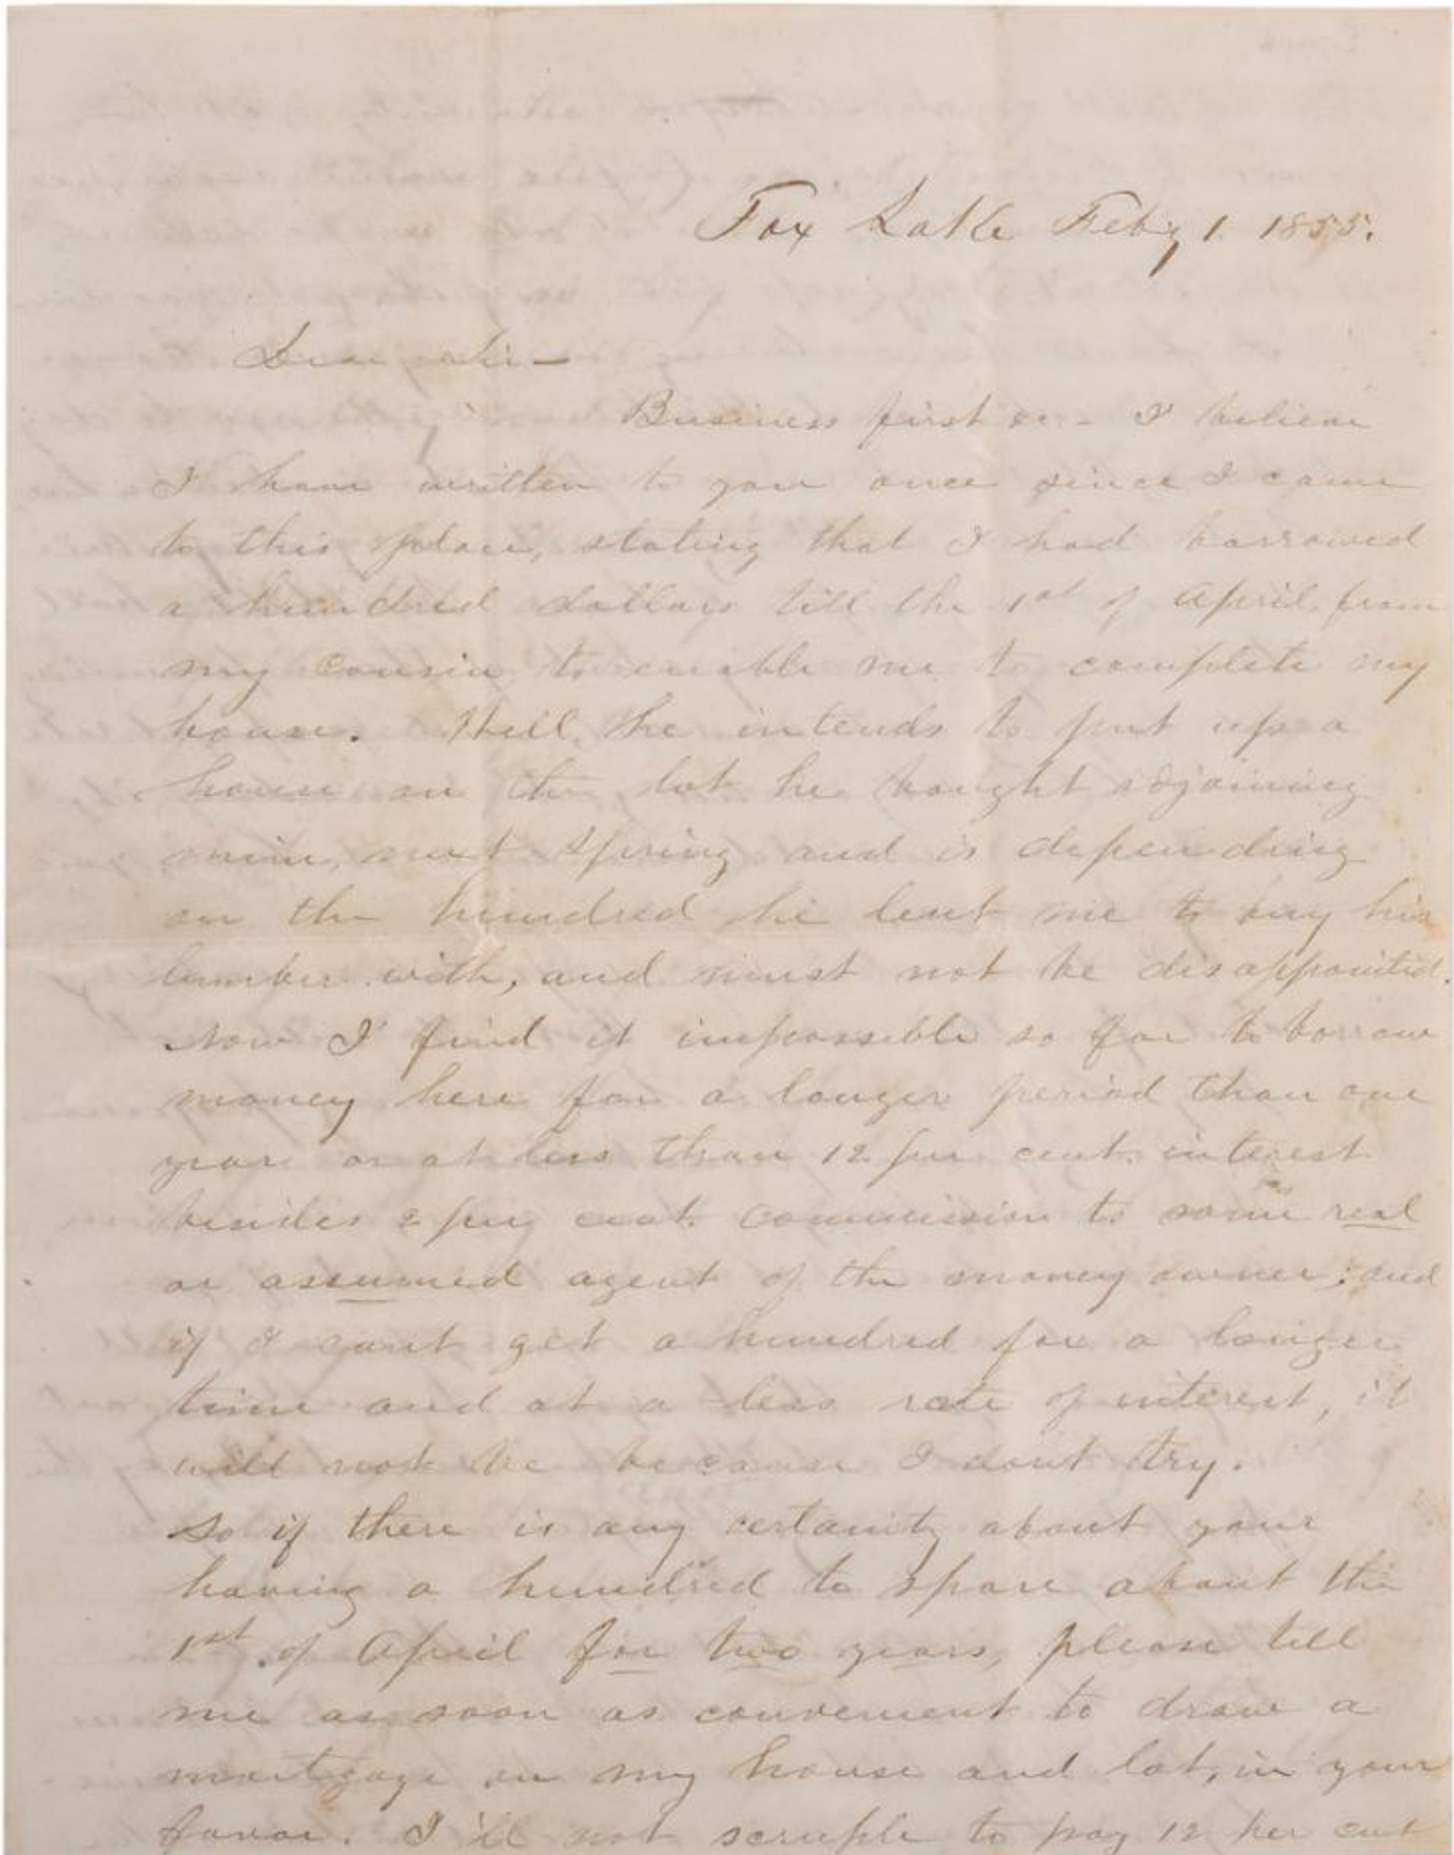 Fox Lake Feby 1. 1855.
Dear Sir—
Business first &c - I believe
I have written to you once since I came
to this place, stating that I had borrowed
a hundred dollars till the 1st of April from
my cousin to enable me to complete my
house. Well, he intends to put up a
house on the lot he bought adjoining
mine, next Spring and is depending
on the hundred he lent me to buy his
lumber with, and must not be disappointed.
Now I find it impossible so far to borrow
money here for a longer period than one
year or at less than 12 per cent. interest
besides per cent commission to some real
or assumed agent of the money owner; and
if I cant get a hundred for a longer
time and at a less rate of interest, it
will not be because I dont try.
So if there is any certainty about your
having a hundred to spare about the
1st of April for two years, please tell
me as soon as convenient to draw a
mortgage on my house and lot, in your
favor. I'll not scruple to pay 12 per cent